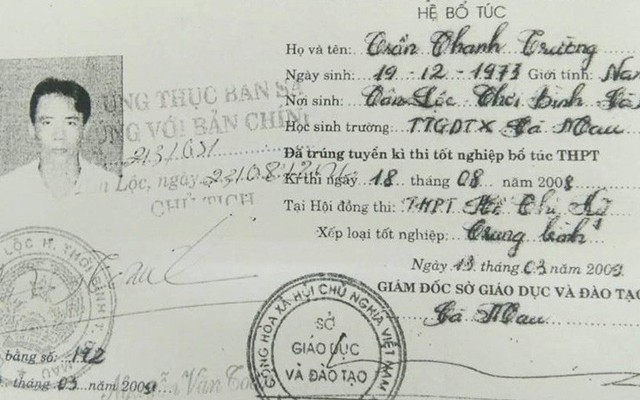 HỆ BỔ TÚC
Họ và tên: Trần Thanh Trường
Ngày sinh: 19-12-1973 Giới tính: Nam
Nơi sinh: Tân Lộc Thới Bình Cà
Học sinh trường: TTGDTX Cà Mau
Đã trúng tuyển kì thi tốt nghiệp bổ túc THPT
Kì thi ngày 18 tháng 08 năm 2008
Tại Hội đồng thi: THPT Hồ Thị Kỷ
Xếp loại tốt nghiệp: Trung bình
Ngày 13 tháng 03 năm 2009
GIÁM ĐỐC SỞ GIÁO DỤC VÀ ĐÀO TẠO
Cà Mau
ỨNG THỰC BẢN SA
NG VỚI BẢN CHÍN
Lộc, ngày
CHỦ TỊCH
LỘC H. THỚI BÌNH T.
MAU
CỘNG HÒA XÃ HỘI CHỦ NGHĨA VIỆT NAM
SỞ
GIÁO DỤC
VÀ ĐÀO TẠO
bằng số: 172
tháng 03 năm 2009
Nguyễn Văn